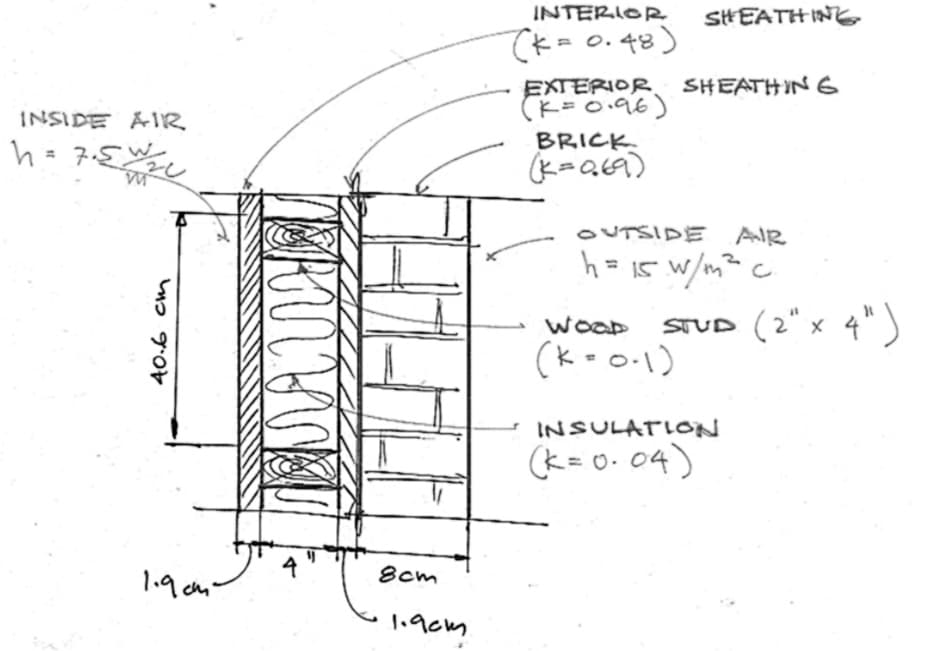 INTERIOR SHEATHING
(K = 0.48)
EXTERIOR SHEATHING
(K=0.96)
INSIDE AIR
h = 7.5 W/m²C
BRICK
(K=0.69)
OUTSIDE AIR
h = 15 W/m² C
40.6 cm
WOOD STUD (2" x 4")
(K = 0.1)
INSULATION
(K=0.04)
1.9cm
4"
8cm
1.9cm